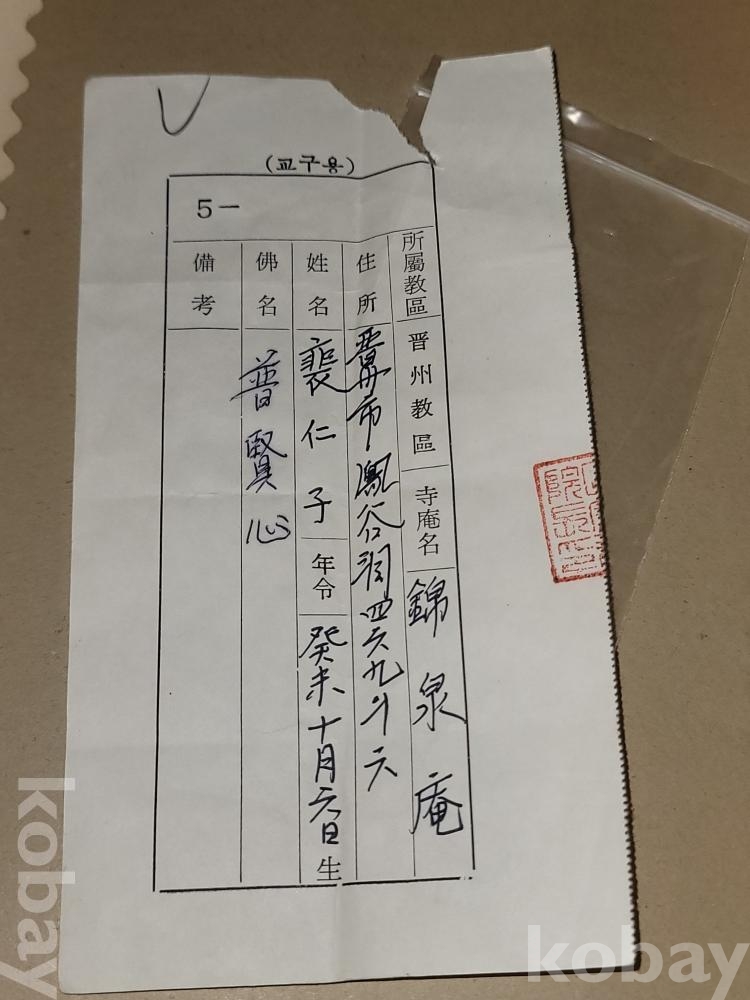 (교구용)
5—
所屬教區 晋州教區 寺庵名 錦泉庵
住所 晋州市鳳谷洞四六九의六
姓名 裵仁子 年令 癸未十月六日生
佛名 普賢心
備考
kobay
kobay